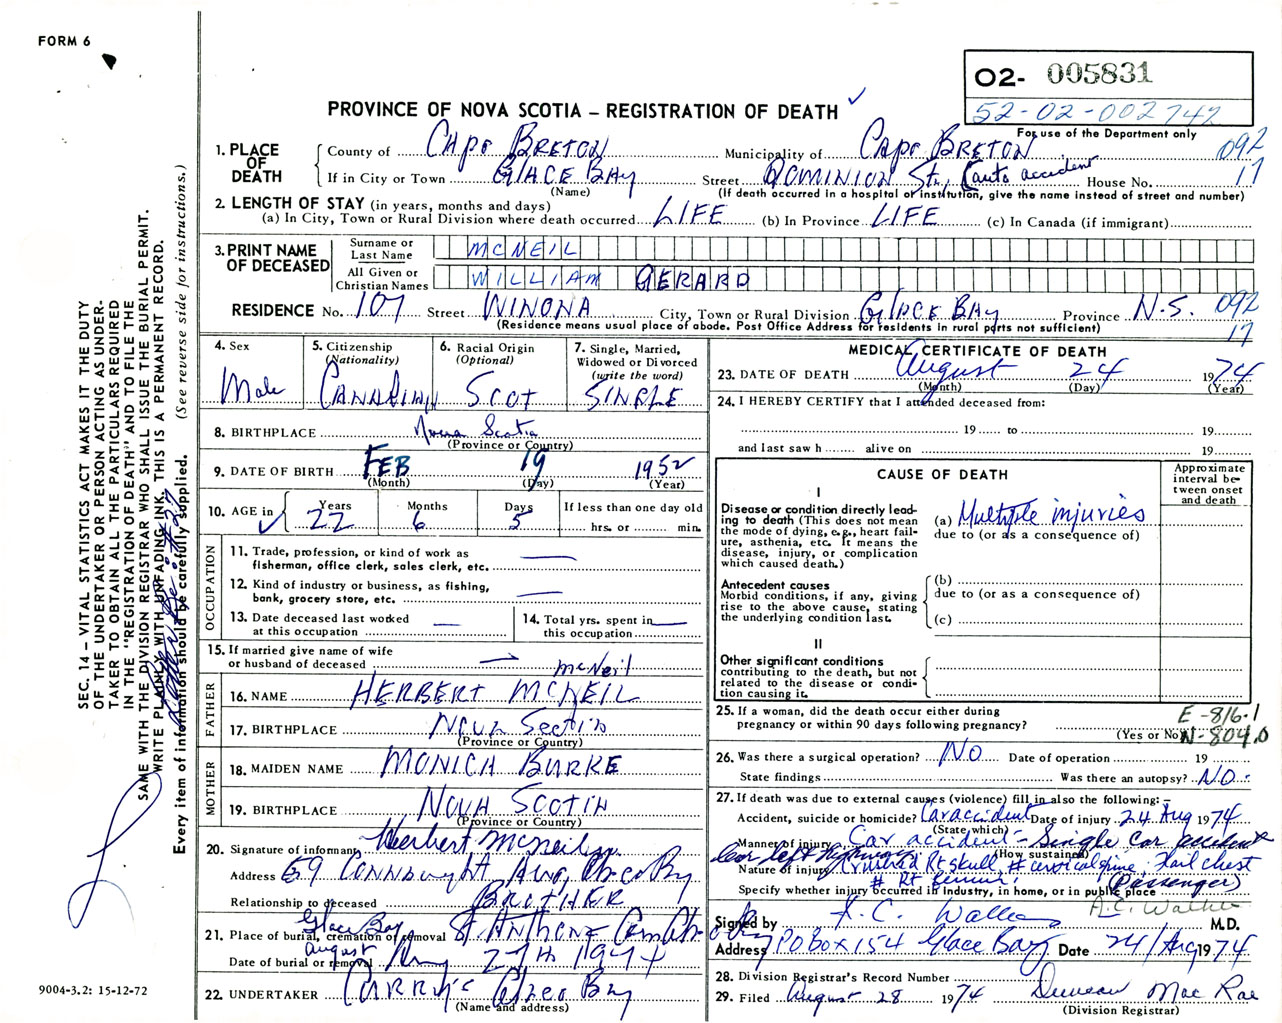 FORM 6
O2- 005831
52-02-002742
For use of the Department only
PROVINCE OF NOVA SCOTIA – REGISTRATION OF DEATH ✓
1. PLACE OF DEATH
County of CAPE BRETON Municipality of CAPE BRETON 092
If in City or Town GLACE BAY Street DOMINION St., (auto accident House No. 17
(Name) (If death occurred in a hospital or institution, give the name instead of street and number)
2. LENGTH OF STAY (in years, months and days)
(a) In City, Town or Rural Division where death occurred LIFE (b) In Province LIFE (c) In Canada (if immigrant)
3. PRINT NAME OF DECEASED
Surname or Last Name MCNEIL
All Given or Christian Names WILLIAM GERARD
RESIDENCE No. 107 Street WINONA City, Town or Rural Division GLACE BAY Province N.S. 092
(Residence means usual place of abode. Post Office Address for residents in rural parts not sufficient) 17
4. Sex Male
5. Citizenship (Nationality) CANADIAN
6. Racial Origin (Optional) SCOT
7. Single, Married, Widowed or Divorced (write the word) SINGLE
8. BIRTHPLACE Nova Scotia
(Province or Country)
9. DATE OF BIRTH FEB 19 1952
(Month) (Day) (Year)
10. AGE in ✓ Years 22 Months 6 Days 5 If less than one day old
hrs. or min.
OCCUPATION
11. Trade, profession, or kind of work as
fisherman, office clerk, sales clerk, etc. —
12. Kind of industry or business, as fishing,
bank, grocery store, etc. —
13. Date deceased last worked
at this occupation —
14. Total yrs. spent in
this occupation —
15. If married give name of wife
or husband of deceased —
McNeil
FATHER
16. NAME HERBERT MCNEIL
17. BIRTHPLACE NOVA SCOTIA
(Province or Country)
MOTHER
18. MAIDEN NAME MONICA BURKE
19. BIRTHPLACE NOVA SCOTIA
(Province or Country)
20. Signature of informant Herbert McNeil Jr.
Address 59 Connaught Ave, Glace Bay
Relationship to deceased BROTHER
Glace Bay
21. Place of burial, cremation or removal St. Anthony Cem
August
Date of burial or removal 27th 1974
22. UNDERTAKER CURRY'S Glace Bay
(Name and address)
MEDICAL CERTIFICATE OF DEATH
23. DATE OF DEATH August 24 1974
(Month) (Day) (Year)
24. I HEREBY CERTIFY that I attended deceased from:
19 to 19
and last saw h alive on 19
CAUSE OF DEATH
Approximate interval between onset and death
I
Disease or condition directly lead-
ing to death (This does not mean
the mode of dying, e.g., heart fail-
ure, asthenia, etc. It means the
disease, injury, or complication
which caused death.)
(a) Multiple injuries
due to (or as a consequence of)
Antecedent causes
Morbid conditions, if any, giving
rise to the above cause, stating
the underlying condition last.
(b)
due to (or as a consequence of)
(c)
II
Other significant conditions
contributing to the death, but not
related to the disease or condi-
tion causing it.
25. If a woman, did the death occur either during
pregnancy or within 90 days following pregnancy?
(Yes or No)
E-816.1
N-804.0
26. Was there a surgical operation? NO Date of operation 19
State findings Was there an autopsy? NO
27. If death was due to external causes (violence) fill in also the following: –
Accident, suicide or homicide? Car accident Date of injury 24 Aug 1974
(State which)
Manner of injury Car accident - Single car accident
Car left highway (How sustained)
Nature of injury Crushed Rt skull # cervical spine, flail chest
# Rt femur
Specify whether injury occurred in industry, in home, or in public place (Passenger)
A.C. Walker
Signed by A. C. Walker M.D.
Address PO Box 154 Glace Bay Date 24/Aug 1974
28. Division Registrar's Record Number
29. Filed August 28 1974 Duncan Mac Rae
(Division Registrar)
SEC. 14 – VITAL STATISTICS ACT MAKES IT THE DUTY
OF THE UNDERTAKER OR PERSON ACTING AS UNDER-
TAKER TO OBTAIN ALL THE PARTICULARS REQUIRED
IN THE "REGISTRATION OF DEATH" AND TO FILE THE
SAME WITH THE DIVISION REGISTRAR WHO SHALL ISSUE THE BURIAL PERMIT.
WRITE PLAINLY WITH UNFADING INK. THIS IS A PERMANENT RECORD.
Every item of information should be carefully supplied. (See reverse side for instructions.)
9004-3.2: 15-12-72